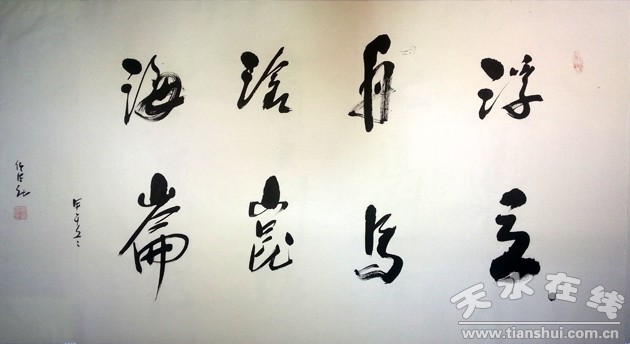 浮舟沧海
立马崑崙
甲午冬
天水在线
www.tianshui.com.cn